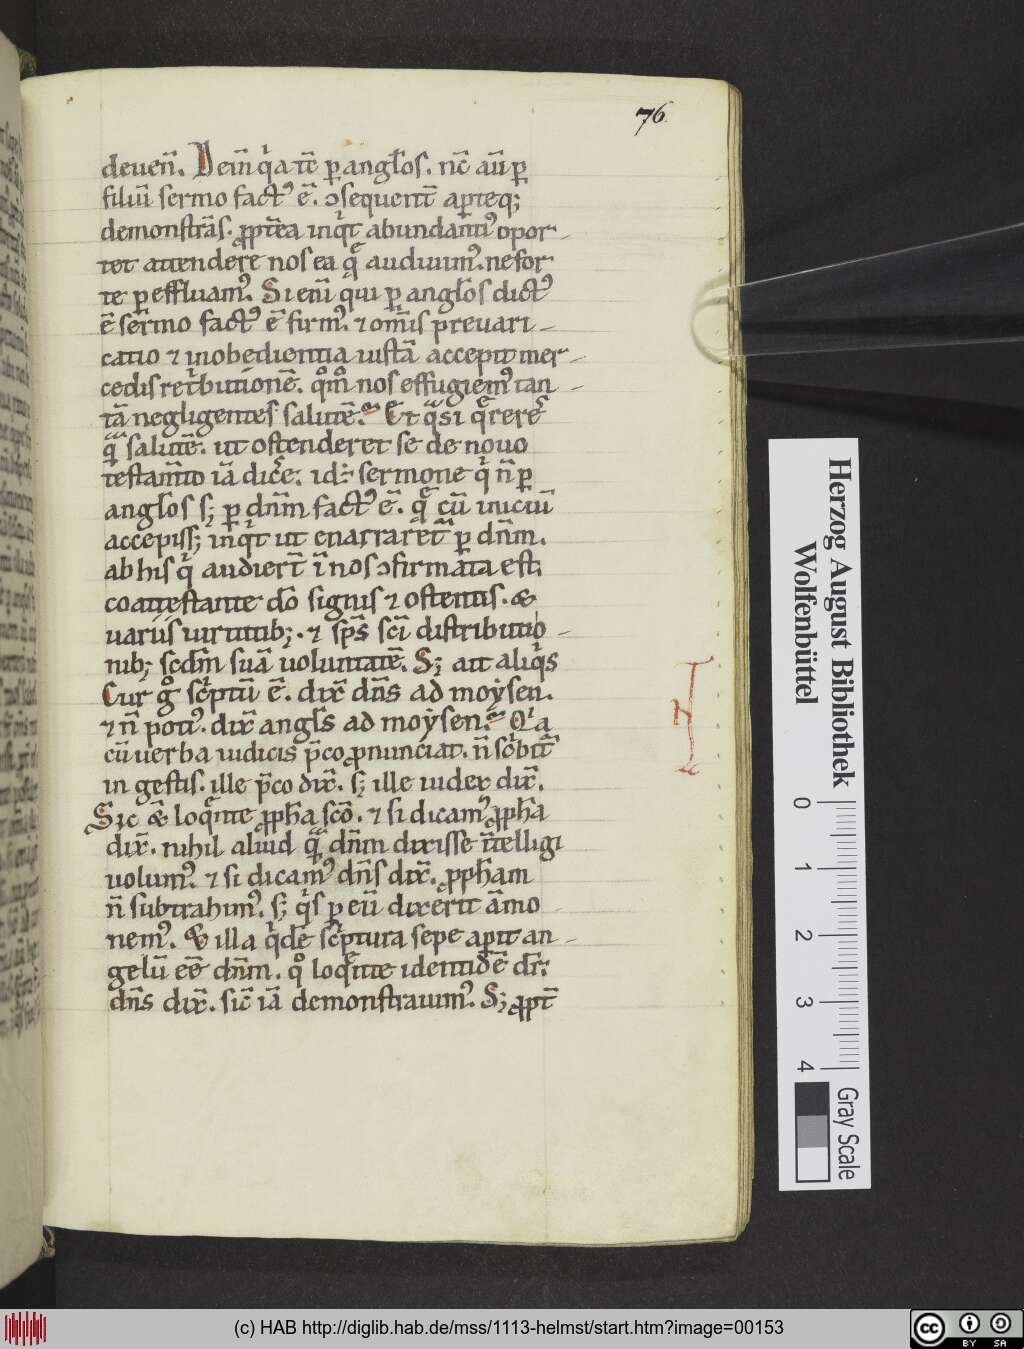 76
deuen̄. Dem̄ qͥa tc̄ ꝑ angl̄os. nc̄ aū ꝑ
filiū sermo factꝰ ē. ↄsequent̄ aꝑteqꝫ
demonstrās. ꝓpt̄ea inqͥt abundantiꝰ opor-
tet attendere nos ea q̄ audiuimꝰ. ne for
te ꝑeffluamꝰ. Si eni̅ qui ꝑ angl̄os dictꝰ
ē sermo factꝰ ē firmꝰ. ⁊ om̄is preuari-
catio ⁊ inobedientia iustā accepit mer-
cedis ret̾butionē. qͦm̊ nos effugiemꝰ tan-
tā negligentes salutē. Et qͣsi q̄rer̄e
qͣ salutē. ut ostenderet se de nouo
testam̄to iā dic̄e. id ÷ sermone qͥ n̄ ꝑ
angl̄os sꝫ ꝑ dn̄m factꝰ ē. q̄ cū iniciū
accepissꝫ inqͥt ut enarraret̄ ꝑ dn̄m.
ab his qͥ audiert̄ ī nos ↄfirmata est.
coattestante do̅ signis ⁊ ostentis. &
uariis uirtutibꝫ. ⁊ sp̄s sc̄i distributio-
nibꝫ scdm̄ suā uoluntatē. Sꝫ ait aliqͥs
Cur gͦ sc̾ptū ē. dix̄ dn̄s ad moẏsen.
⁊ n̄ potiꝰ. dix̄ angl̄s ad moẏsen. Qͥa
cū uerba iudicis p̄co ꝓnunciat. n̄ sc̾bit̄
in gestis. ille p̄co dix̄. sꝫ ille iudex dix̄.
Sic & loq̄nte ꝓph̄a sc̄o. ⁊ si dicamꝰ ꝓph̄a
dix̄. nihil aliud qͣ dn̄m dixisse īntelligi
uolumꝰ. ⁊ si dicamꝰ dn̄s dix̄. ꝓph̄am
n̄ subtrahimꝰ. sꝫ qͥs ꝑ eū dixerit āmo
nemꝰ. & illa qͥde̅ sc̾ptura sepe aꝑit an-
gelū ēē dn̄m. qͦ loq̄nte identidē dr̄:
dn̄s dix̄. sic̄ iā demonstrauimꝰ. Sꝫ ꝓpt̄
Herzog August Bibliothek
Wolfenbüttel
0 1 2 3 4
Gray Scale
(c) HAB http://diglib.hab.de/mss/1113-helmst/start.htm?image=00153
cc BY SA